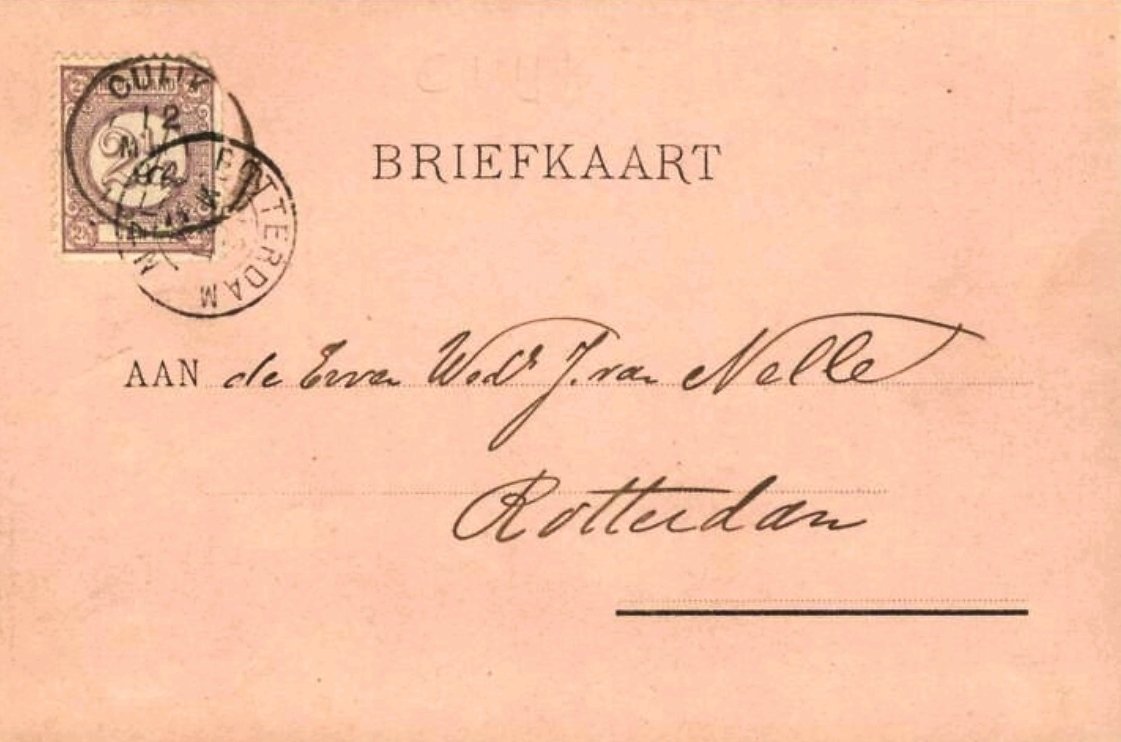 CUIJK
12
2½
2½
ROTTERDAM
BRIEFKAART
AAN de Erven Wed. J. van Nelle
Rotterdam